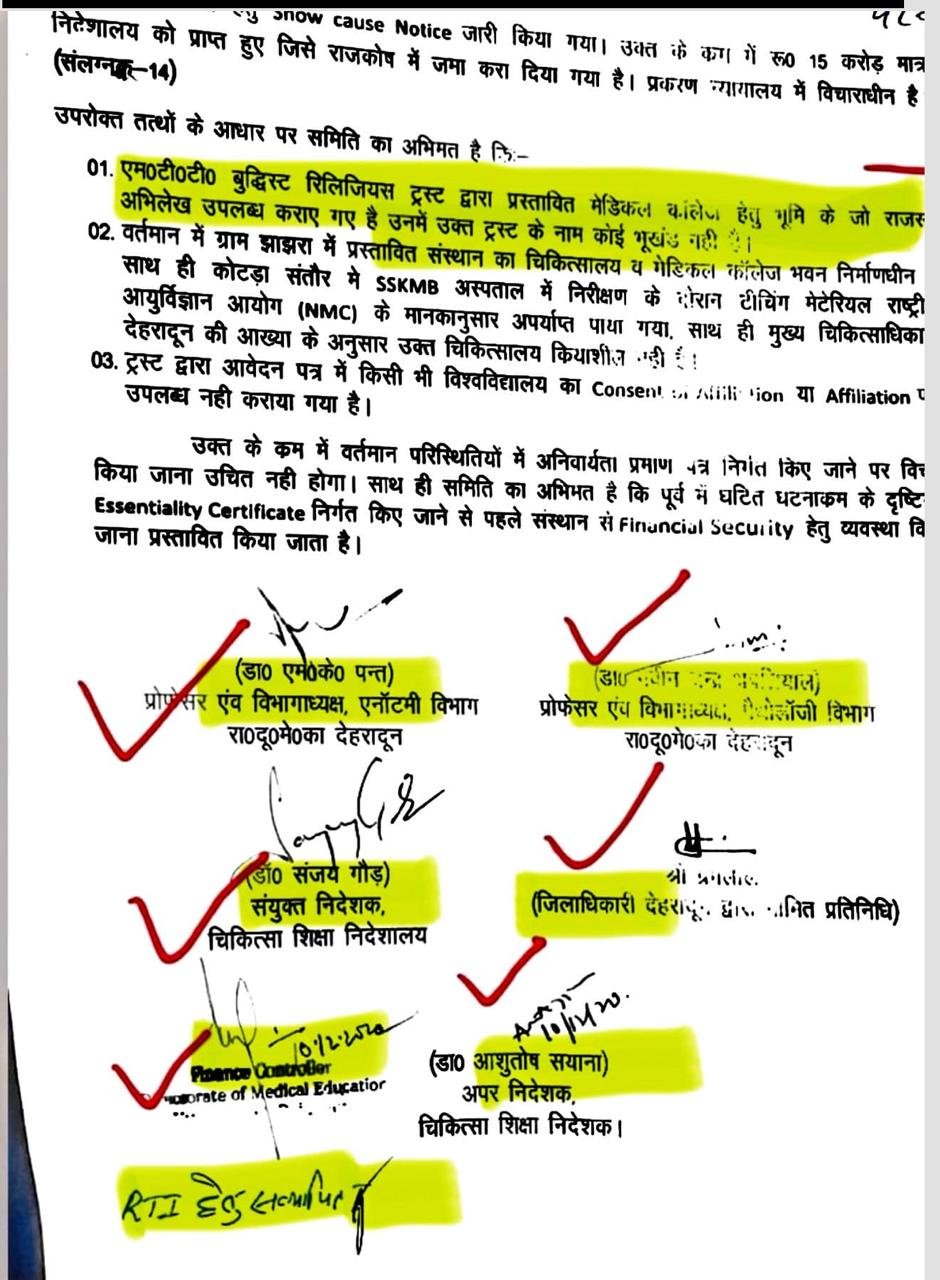 Show cause Notice जारी किया गया। उक्त के कम में रू0 15 करोड़ मात्र
निदेशालय को प्राप्त हुए जिसे राजकोष में जमा करा दिया गया है। प्रकरण न्यायालय में विचाराधीन है
(संलग्नक–14)
उपरोक्त तत्थों के आधार पर समिति का अभिमत है कि:–
01. एम0टी0टी0 बुद्धिस्ट रिलिजियस ट्रस्ट द्वारा प्रस्तावित मेडिकल कॉलेज हेतु भूमि के जो राजस
अभिलेख उपलब्ध कराए गए है उनमें उक्त ट्रस्ट के नाम कोई भूखंड नही है।
02. वर्तमान में ग्राम झाझरा में प्रस्तावित संस्थान का चिकित्सालय व मेडिकल कॉलेज भवन निर्माणधीन
साथ ही कोटड़ा संतौर मे SSKMB अस्पताल में निरीक्षण के दौरान टीचिंग मेटेरियल राष्ट्री
आयुर्विज्ञान आयोग (NMC) के मानकानुसार अपर्याप्त पाया गया, साथ ही मुख्य चिकित्साधिका
देहरादून की आख्या के अनुसार उक्त चिकित्सालय कियाशील नही है।
03. ट्रस्ट द्वारा आवेदन पत्र में किसी भी विश्वविद्यालय का Consent of Affiliation या Affiliation प
उपलब्ध नही कराया गया है।
उक्त के कम में वर्तमान परिस्थितियों में अनिवार्यता प्रमाण पत्र निर्गत किए जाने पर विच
किया जाना उचित नही होगा। साथ ही समिति का अभिमत है कि पूर्व में घटित घटनाकम के दृष्टि
Essentiality Certificate निर्गत किए जाने से पहले संस्थान से Financial Security हेतु व्यवस्था कि
जाना प्रस्तावित किया जाता है।
(डा0 एम0के0 पन्त)
प्रोफेसर एंव विभागाध्यक्ष, एनॉटमी विभाग
रा0दू0मे0का देहरादून
(डा0 नवीन चन्द्र
प्रोफेसर एंव विभागाध्यक्ष, पैथोलॉजी विभाग
रा0दू0मे0का देहरादून
(डॉ0 संजय गौड़)
संयुक्त निदेशक,
चिकित्सा शिक्षा निदेशालय
श्री
(जिलाधिकारी देहरादून द्वारा नामित प्रतिनिधि)
10/12/2020
Finance Controller
Directorate of Medical Education
10/12/20.
(डा0 आशुतोष सयाना)
अपर निदेशक,
चिकित्सा शिक्षा निदेशक।
RTI हेतु सत्यापित